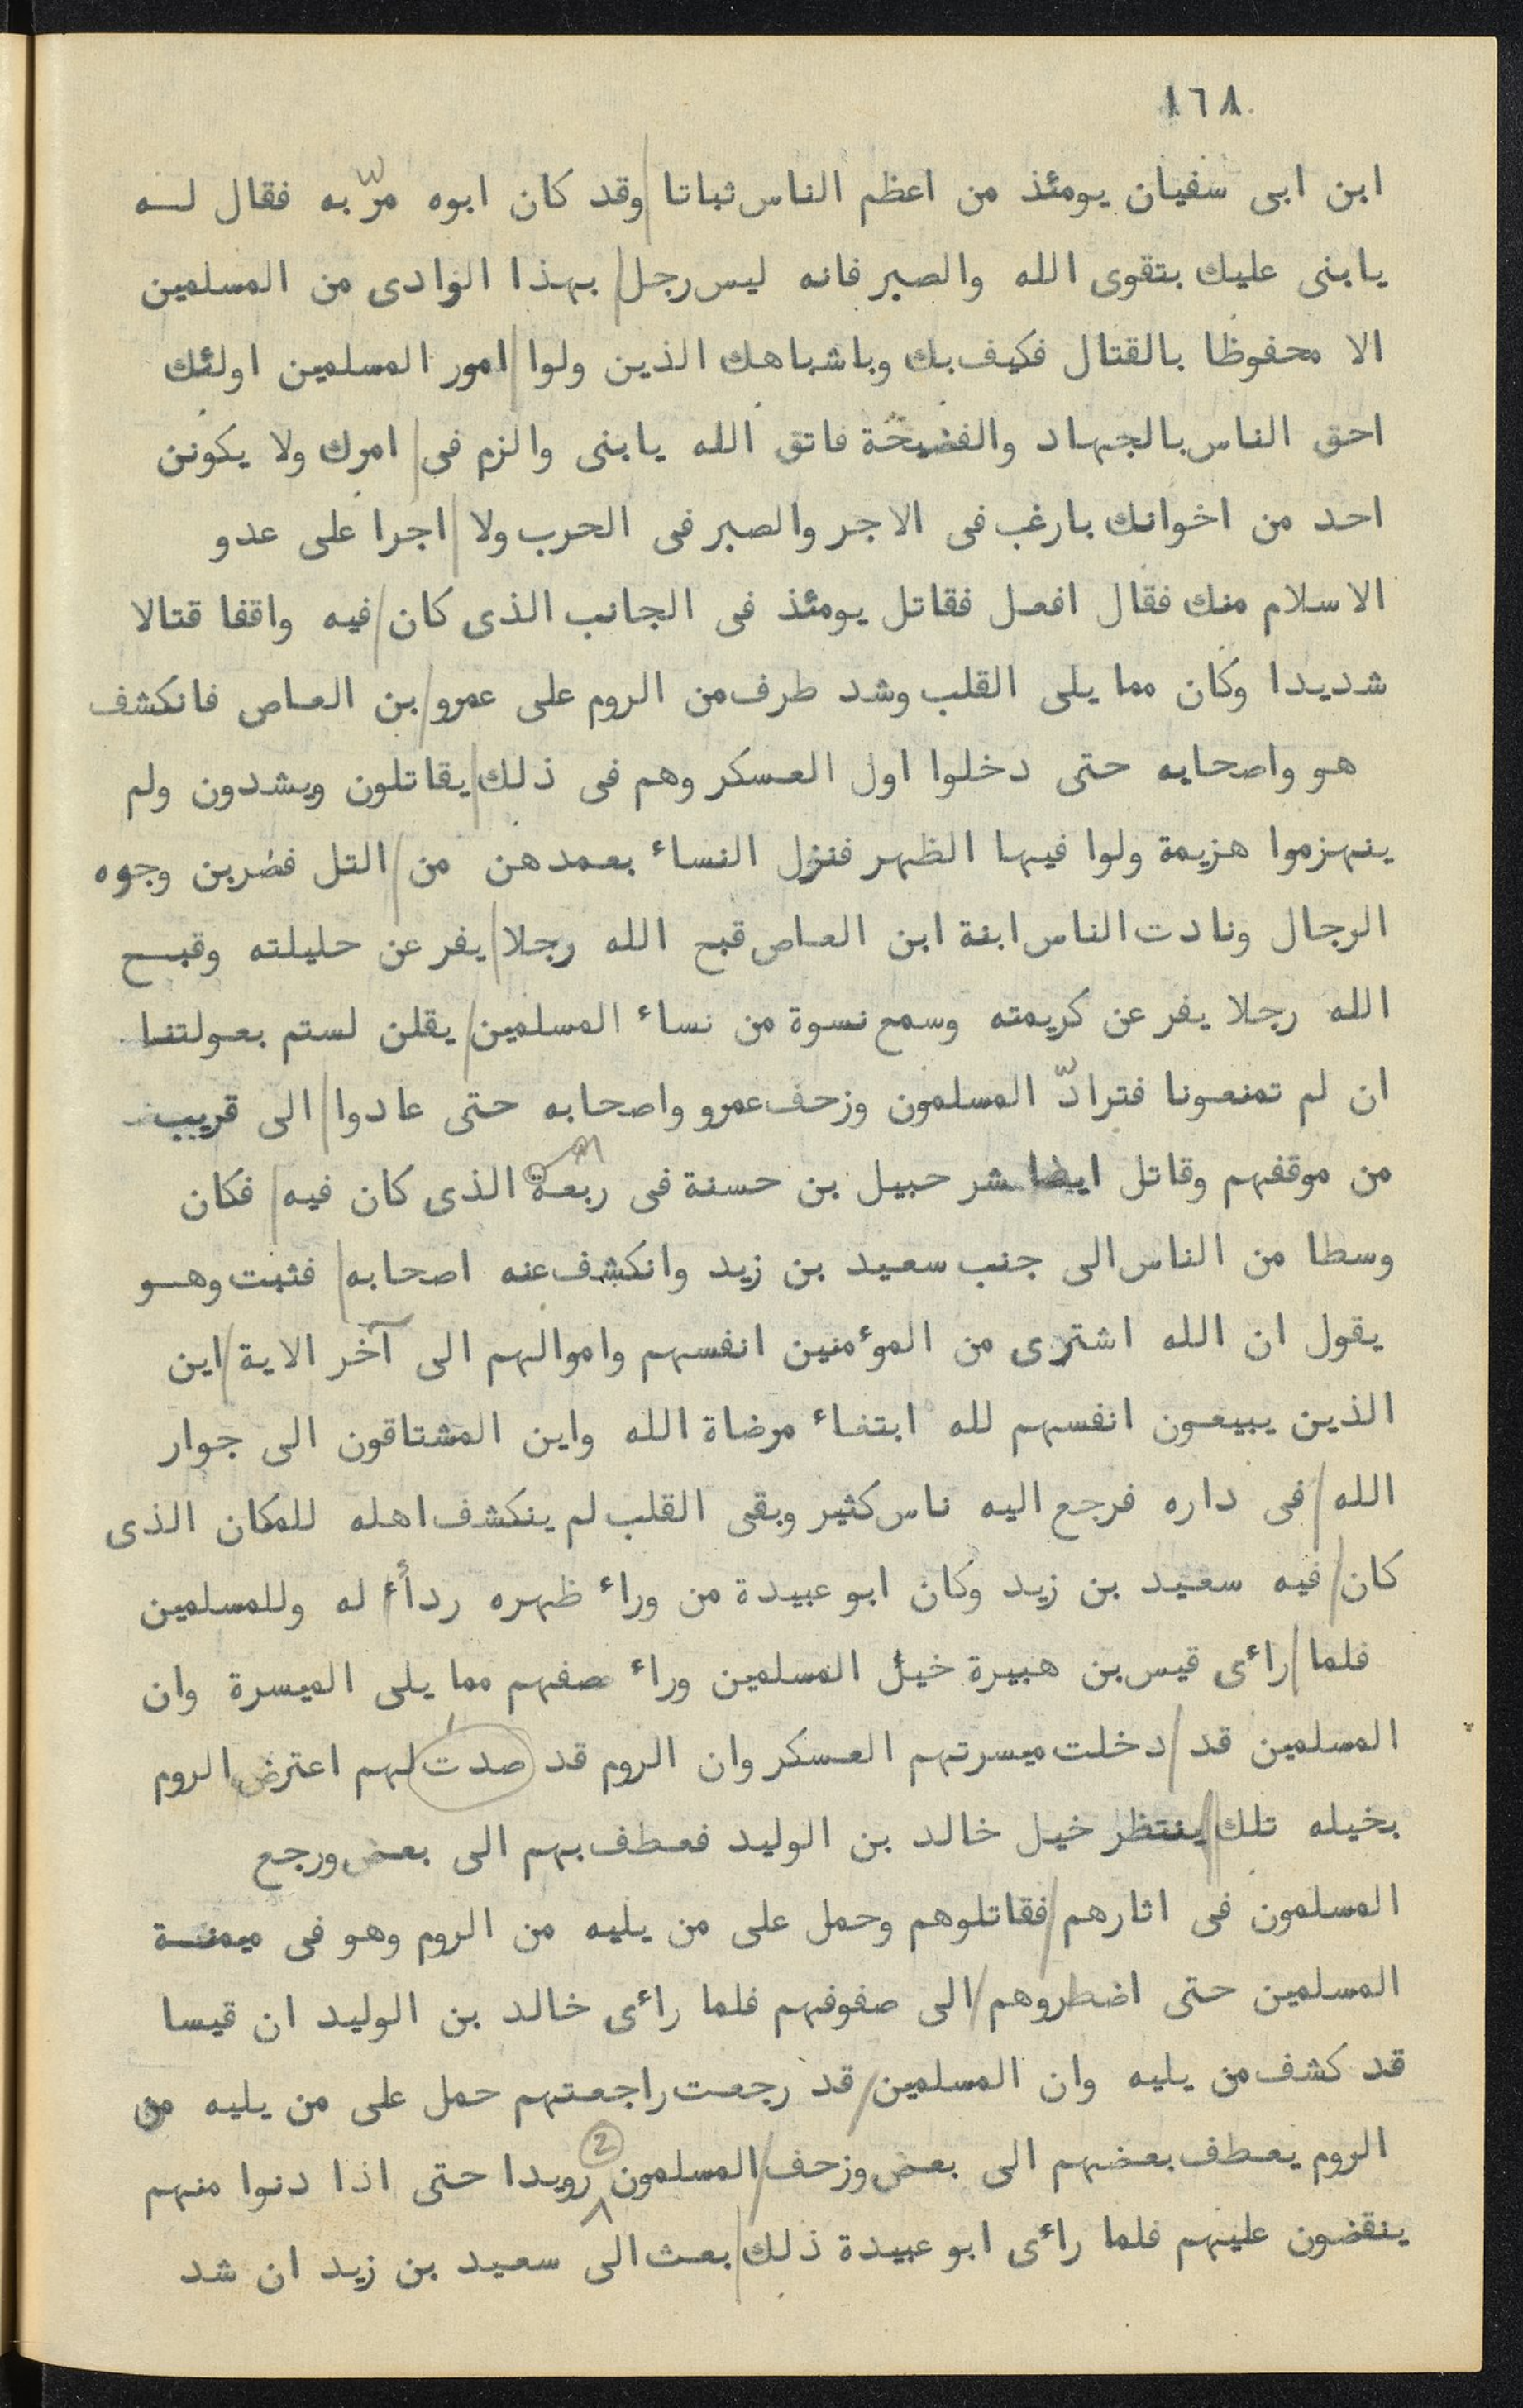 ١٦٨
ابن ابى سفيان يومئذ من اعظم الناس ثباتا / وقد كان ابوه مرّ به فقال له
يابنى عليك بتقوى الله والصبر فانه ليس رجل / بهذا الوادى من المسلمين
الا محفوظا بالقتال فكيف بك وباشباهك الذين ولوا / امور المسلمين اولئك
احق الناس بالجهاد والفضيحة فاتق الله يابنى والزم فى / امرك ولا يكونن
احد من اخوانك بارغب فى الاجر والصبر فى الحرب ولا / اجرا على عدو
الاسلام منك فقال افعل فقاتل يومئذ فى الجانب الذى كان / فيه واقفا قتالا
شديدا وكان مما يلى القلب وشد طرف من الروم على عمرو / بن العاص فانكشف
هو واصحابه حتى دخلوا اول العسكر وهم فى ذلك / يقاتلون ويشدون ولم
ينهزموا هزيمة ولوا فيها الظهر فنزل النساء بعمدهن من / التل فضربن وجوه
الرجال ونادت الناس ابنة ابن العاص قبح الله رجلا / يفر عن حليلته وقبح
الله رجلا يفر عن كريمته وسمع نسوة من نساء المسلمين / يقلن لستم بعولتنا
ان لم تمنعونا فترادّ المسلمون وزحف عمرو واصحابه حتى عادوا / الى قريب
من موقفهم وقاتل ايضا شرحبيل بن حسنة فى ربعة الذى كان فيه / فكان
وسطا من الناس الى جنب سعيد بن زيد وانكشف عنه اصحابه / فثبت وهو
يقول ان الله اشترى من المؤمنين انفسهم واموالهم الى آخر الاية / اين
الذين يبيعون انفسهم لله ابتغاء مرضاة الله واين المشتاقون الى جوار
الله / فى داره فرجع اليه ناس كثير وبقى القلب لم ينكشف اهله للمكان الذى
كان / فيه سعيد بن زيد وكان ابو عبيدة من وراء ظهره ردأء له وللمسلمين
فلما / راءى قيس بن هبيرة خيل المسلمين وراء صفهم مما يلى الميسرة وان
المسلمين قد / دخلت ميسرتهم العسكر وان الروم قد صدت لهم اعترض الروم
بخيله تلك / ينتظر خيل خالد بن الوليد فعطف بهم الى بعض ورجع
المسلمون فى اثارهم / فقاتلوهم وحمل على من يليه من الروم وهو فى ميمنة
المسلمين حتى اضطروهم / الى صفوفهم فلما راءى خالد بن الوليد ان قيسا
قد كشف من يليه وان المسلمين / قد رجعت راجعتهم حمل على من يليه من
الروم يعطف بعضهم الى بعض وزحف / المسلمون 2 رويدا حتى اذا دنوا منهم
ينقضون عليهم فلما راءى ابو عبيدة ذلك / بعث الى سعيد بن زيد ان شد